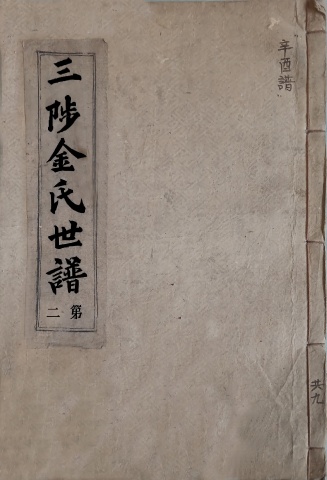 辛酉譜
共九
三陟金氏世譜
第二